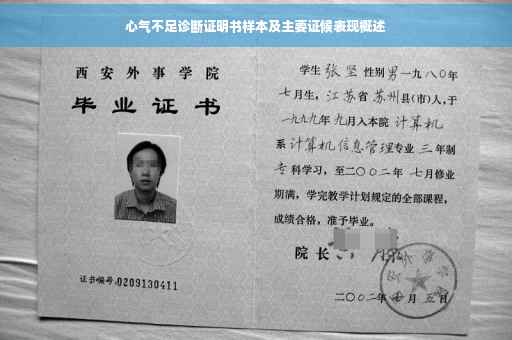 心气不足诊断证明书样本及主要证候表现概述
西安外事学院
毕业证书
证书编号:0209130411
学生 张坚 性别男一九八〇年
七月生，江苏省苏州县(市)人,于
一九九九年九月入本院 计算机
系计算机信息管理专业 三年制
专科学习，至二〇〇二年七月修业
期满，学完教学计划规定的全部课程，
成绩合格，准予毕业。
院长
二〇〇二年 月五日